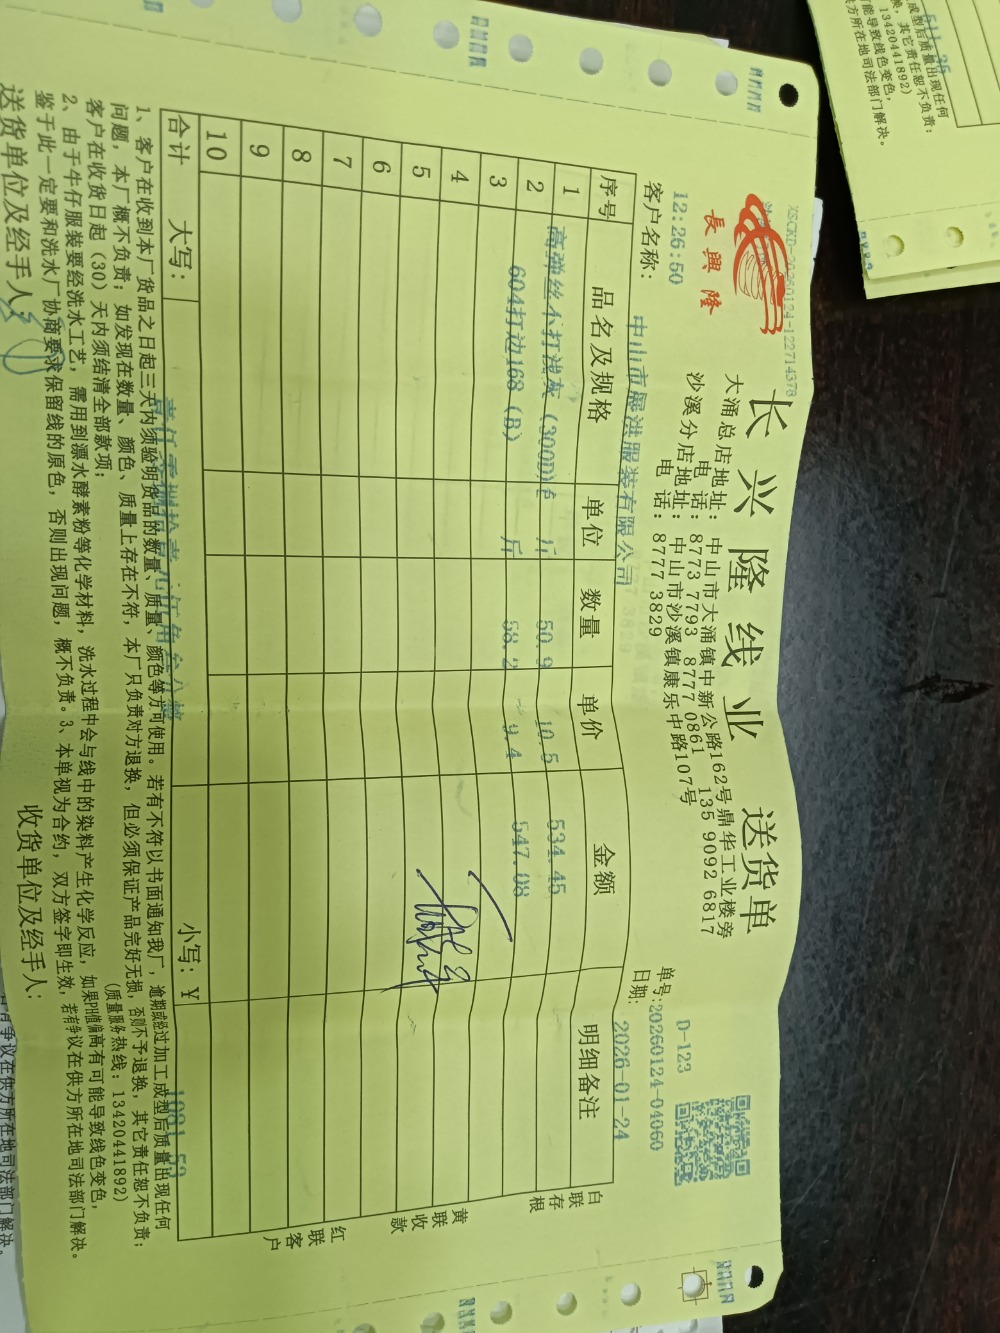 XSCKD-20260124-122714378
12:26:50
長興隆
长兴隆线业 送货单
大涌总店地址：中山市大涌镇中新公路162号鼎华工业楼旁
电 话：8773 7793 8777 0861 135 9092 6817
沙溪分店地址：中山市沙溪镇康乐中路107号
电 话：8777 3829
D-123
单号：20260124-04060
日期：2026-01-24
客户名称：中山市展洪服装有限公司
序号 品名及规格 单位 数量 单价 金额 明细备注
1 高弹丝不打浅灰(300D) 斤 50.9 10.5 534.45
2 604打边168 (B) 斤 58.2 9.4 547.08
3
4
5
6
7
8
9
10
合计 大写： 小写：￥ 1081.53
白联存根
黄联收款
红联客户
1、客户在收到本厂货品之日起三天内须验明货品的数量、质量、颜色等方可使用。若有不符以书面通知我厂，逾期或经过加工成型后质量出现任何
问题，本厂概不负责；如发现在数量、颜色、质量上存在不符，本厂只负责对方退换，但必须保证产品完好无损，否则不予退换，其它责任恕不负责；
客户在收货日起（30）天内须结清全部款项；
（质量服务热线：13420441892）
2、由于牛仔服装要经洗水工艺，需用到漂水酵素粉等化学材料，洗水过程中会与线中的染料产生化学反应，如果PH值偏高有可能导致线色变色，
鉴于此一定要和洗水厂协商要求保留线的原色，否则出现问题，概不负责。3、本单视为合约，双方签字即生效，若有争议在供方所在地司法部门解决。
送货单位及经手人：
收货单位及经手人：
成型后质量出现任何
其它责任恕不负责；
13420441892）
能导致线色变色，
方所在地司法部门解决。